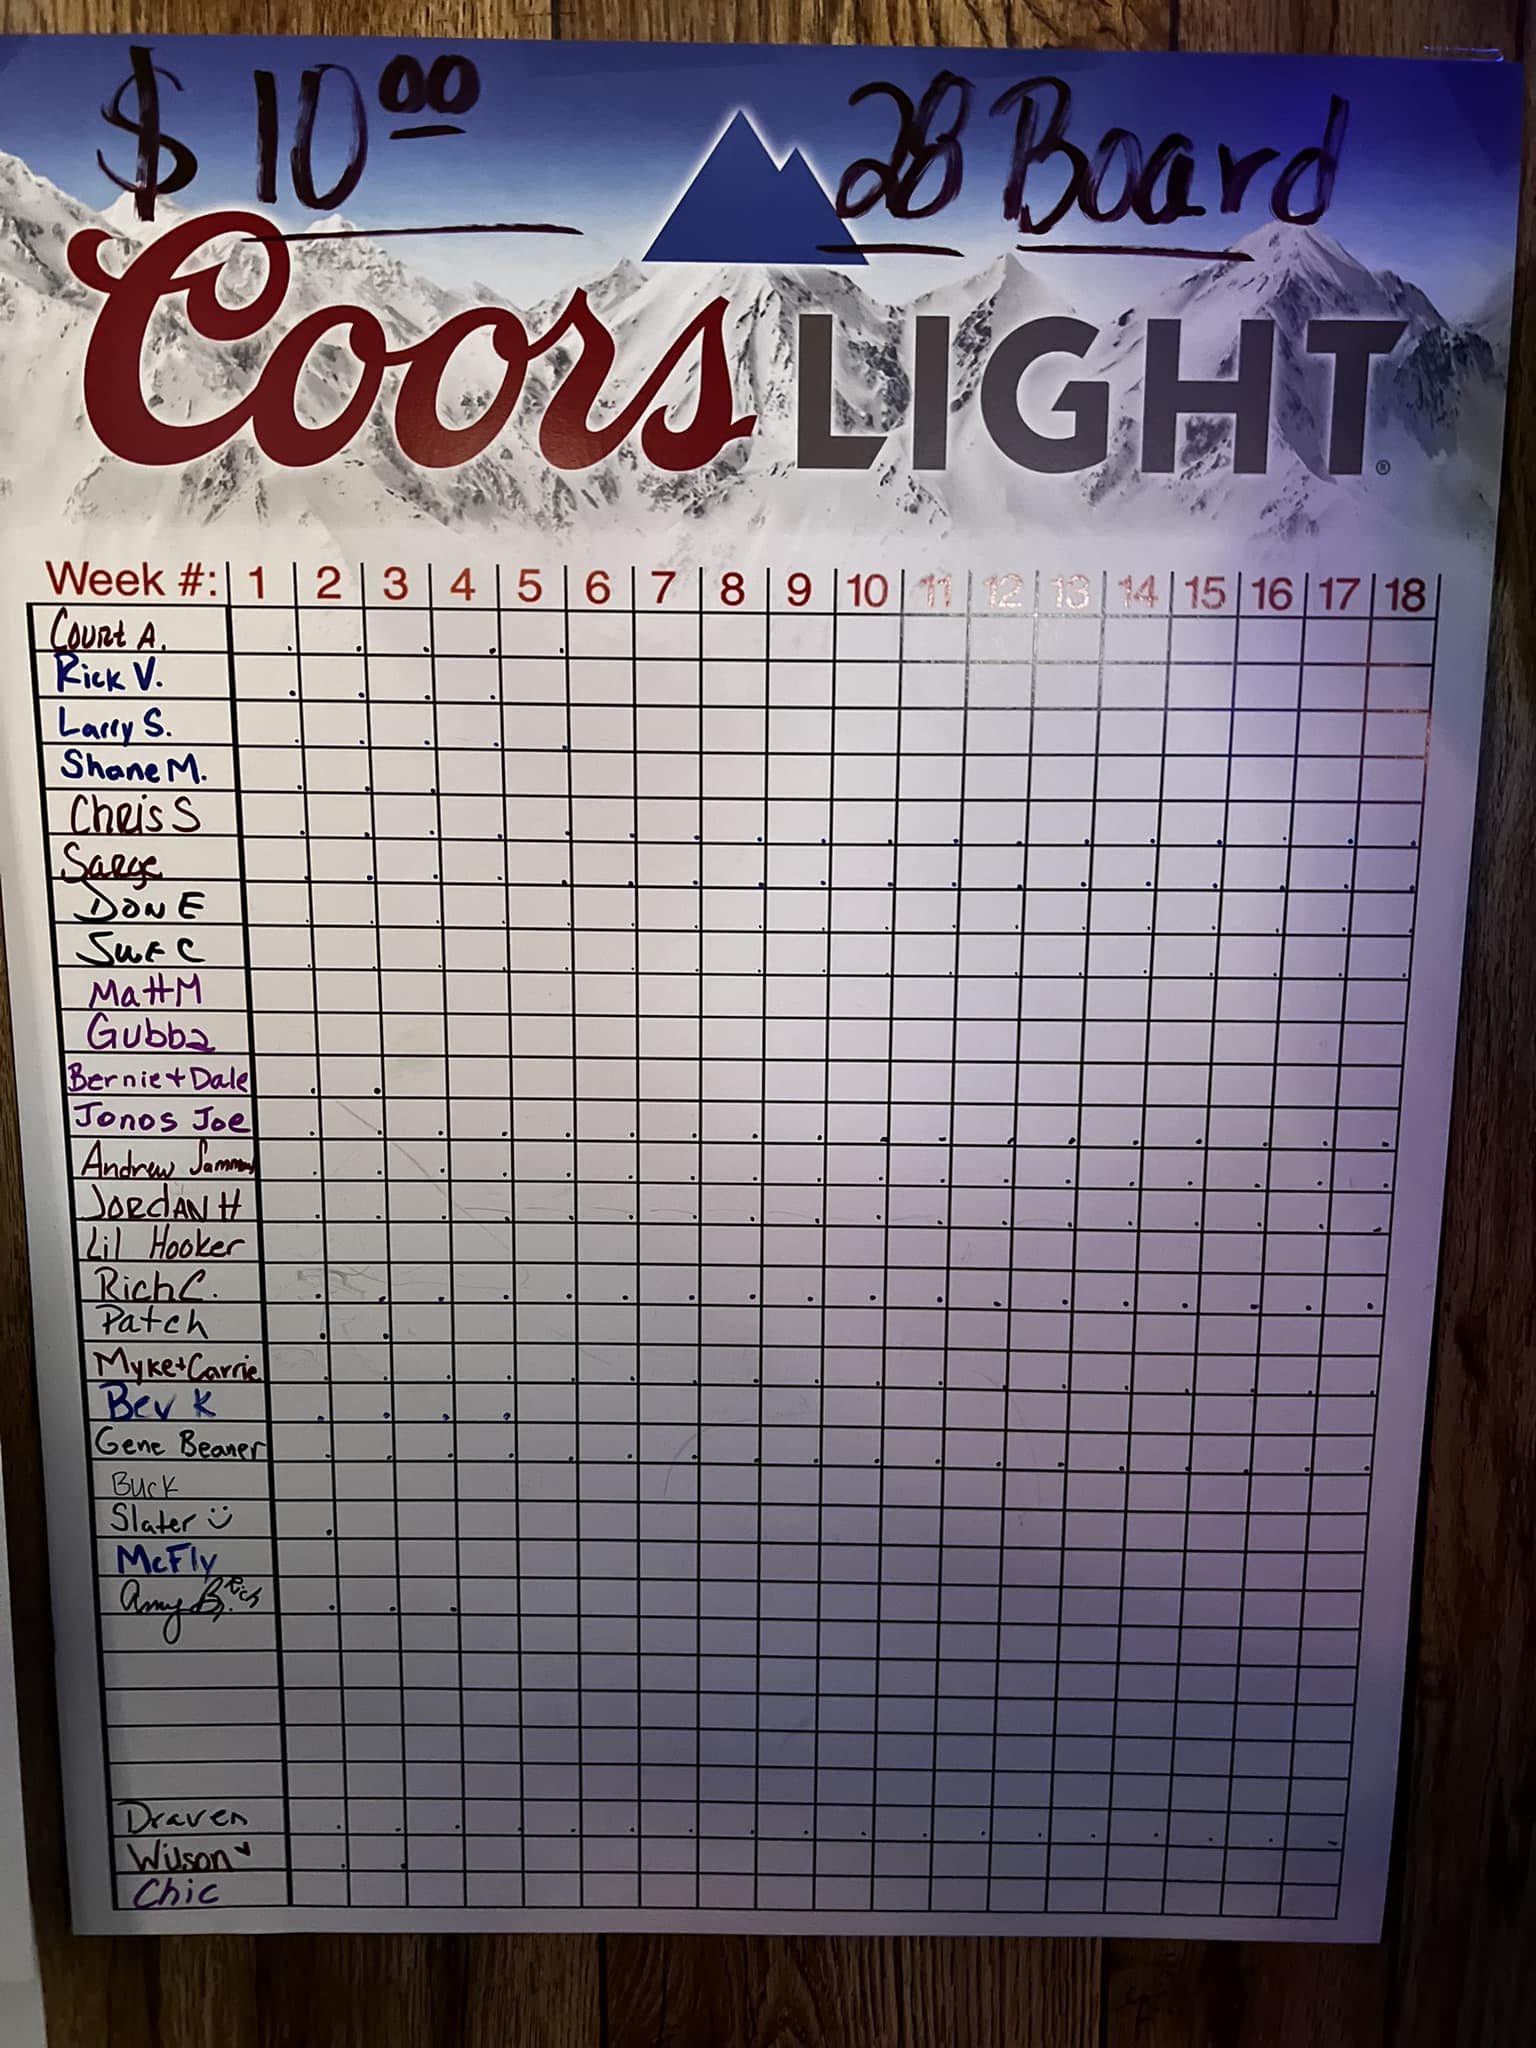 $ 10.00 28 Board
Coors LIGHT®
Week #: 1 2 3 4 5 6 7 8 9 10 11 12 13 14 15 16 17 18
Court A.
Rick V.
Larry S.
Shane M.
Chris S
Sarge
Don E
Sue C
Matt M
Gubba
Bernie + Dale
Jonos Joe
Andrew
Jordan H
Lil Hooker
Rich C.
Patch
Myke + Carrie
Bev K
Gene Beaner
Buck
Slater
McFly
Amy B. Rich
Draven
Wilson
Chic